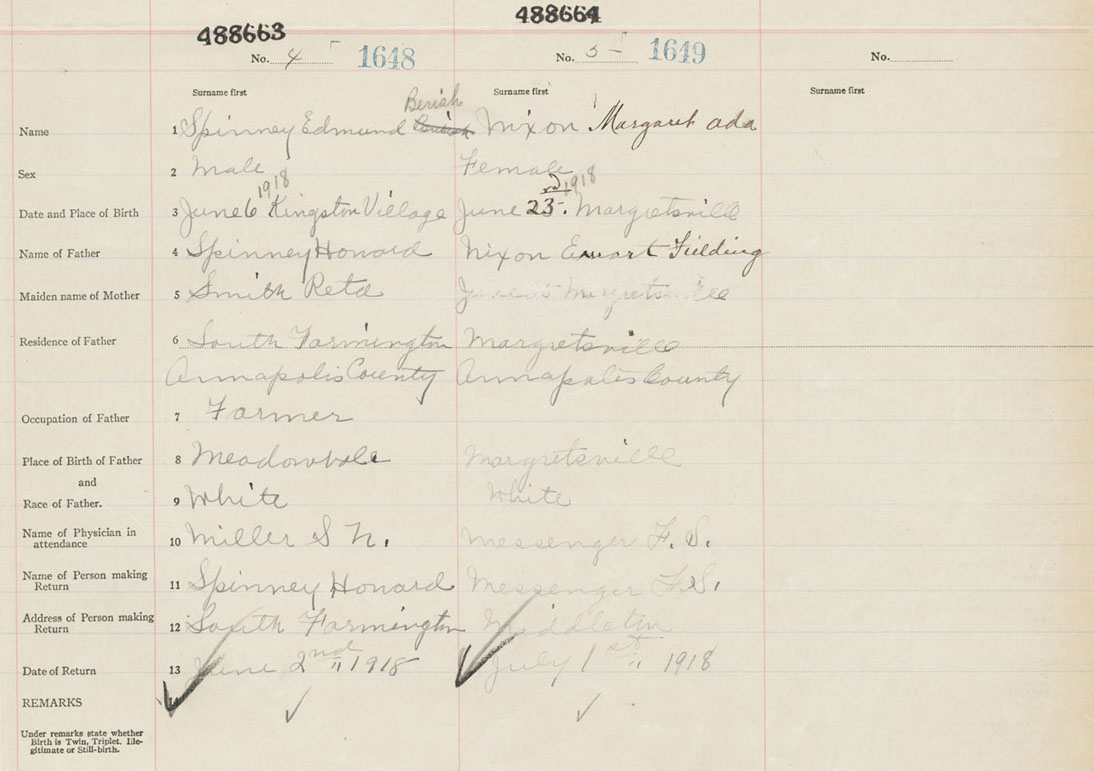 488663 488664
No. 4 1648 No. 5 1649 No.
Surname first Surname first Surname first
Beriah
Name 1 Spinney Edmund Nixon Margaret Ada
Sex 2 Male Female
1918 rd 1918
Date and Place of Birth 3 June 6 Kingston Village June 23. Margretsville
Name of Father 4 Spinney Howard Nixon Ewart Fielding
Maiden name of Mother 5 Smith Reta Margretsville
Residence of Father 6 South Farmington Margretsville
Annapolis County Annapolis County
Occupation of Father 7 Farmer
Place of Birth of Father 8 Meadowvale Margretsville
and
Race of Father. 9 White White
Name of Physician in
attendance 10 Miller S N. Messenger F. S.
Name of Person making
Return 11 Spinney Howard Messenger F. S.
Address of Person making
Return 12 South Farmington Middleton
Date of Return 13 June 2nd " 1918 July 1st " 1918
REMARKS 14
Under remarks state whether
Birth is Twin, Triplet, Ille-
gitimate or Still-birth.